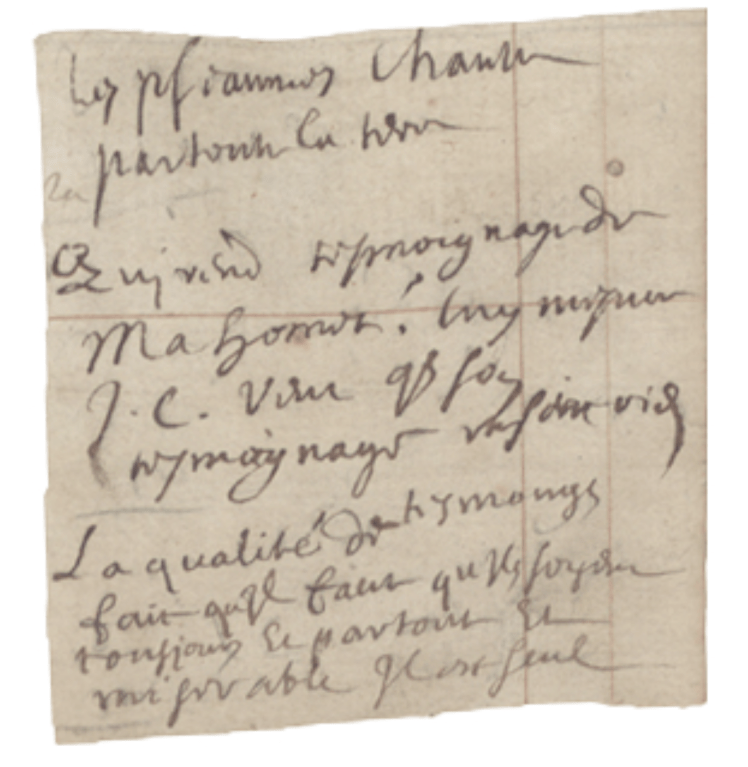 Les pseaumes Chantes
par toute la terre
Qui rend tesmoignage de
Mahomet? luy mesme
J. C. veut que son
tesmoignage ne soit rien
La qualité de tesmoings
fait qu'il faut qu'ils soyent
tousjours et partout et
miserable Il est seul